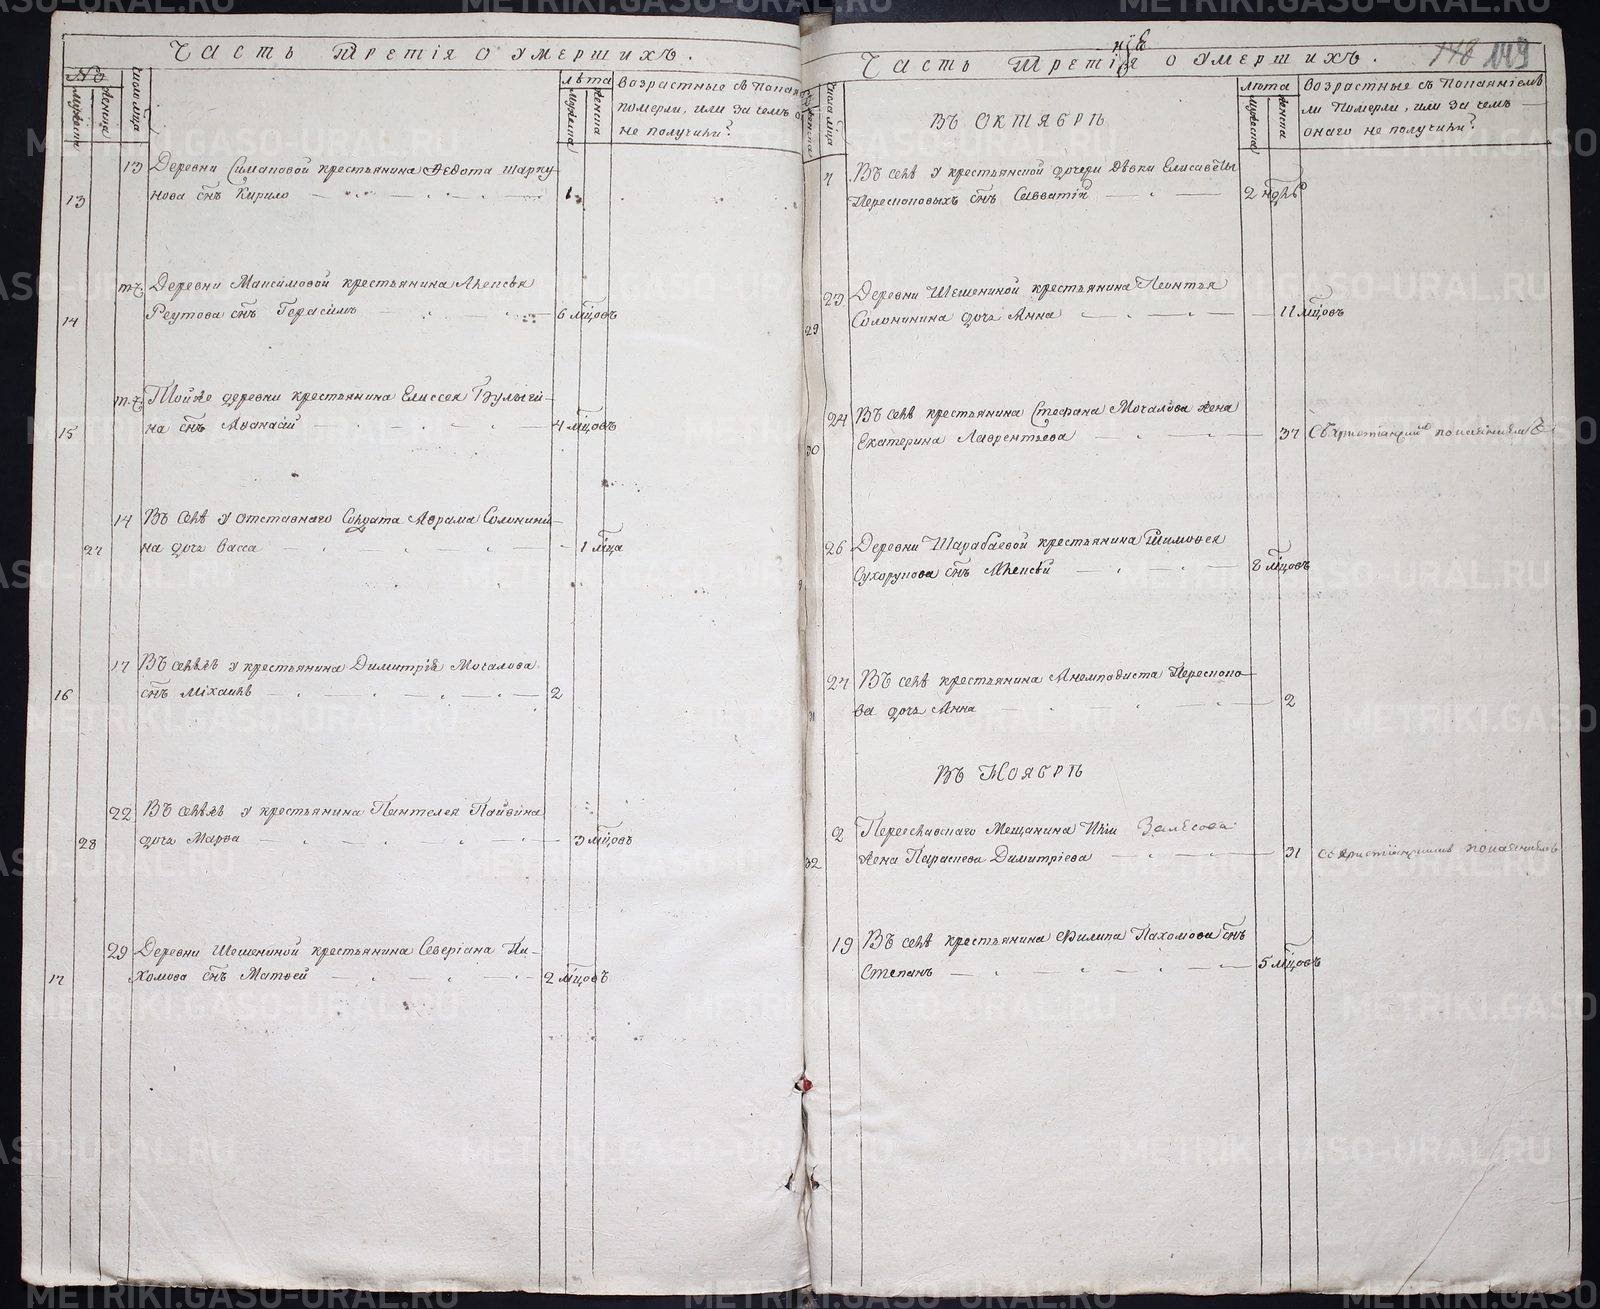 Часть третія о умершихъ.
№
мужеска
женска
числ. мца
лѣта
мужеска
женска
Возрастные съ
померли, или за чемъ
не получили?
13 13 Деревни Симановой крестьянина Федота Шарку
нова снъ Кирило 1
14 т.ч. Деревни Максимовой крестьянина Алексѣя
Реутова снъ Герасимъ 6 мцовъ
15 т.ч. Тойже деревни крестьянина Елисеея Булыги-
на снъ Афанасій 4 мцовъ
14 Въ селѣ у отставнаго Солдата Аврама Солонини-
27 на дочь Васса 1 мца
17 Въ селѣ у крестьянина Димитрія Мочалова
16 снъ Міхаилъ 2
22 Въ селѣ у крестьянина Пантелея Пайвина
28 дочь Марѳа 3 мцовъ
29 Деревни Шешениной крестьянина Северіана Па-
17 хомова снъ Матвей 2 мцовъ
Часть третія о умершихъ.
148 149
числа мца
лѣта
мужеска
женска
Возрастные съ покаяніемъ
ли померли, или за чемъ
онаго не получили?
Въ Октябрѣ
Въ селѣ у крестьянской дочери дѣвки Елисаветы
Пересыповыхъ снъ Савватій 2 нделъ
23 Деревни Шешениной крестьянина Леонтья
29 Солонинина дочь Анна 11 мцовъ
24 Въ селѣ крестьянина Стефана Мочалова жена
30 Екатерина Лаврентьева 37 Съ Христіанскимъ покаяніемъ
26 Деревни Шарабаевой крестьянина Тимофея
Сухорукова снъ Алексѣй 8 мцовъ
27 Въ селѣ крестьянина Анемподиста
31 ва дочь Анна 2
Въ Ноябрѣ
2 Мещанина Ильи
32 жена Параскева Димитріева 31 съ Христіанскимъ покаяніемъ
19 Въ селѣ крестьянина Филипа Пахомова снъ
Степанъ 5 мцовъ
METRIKI.GASO-URAL.RU